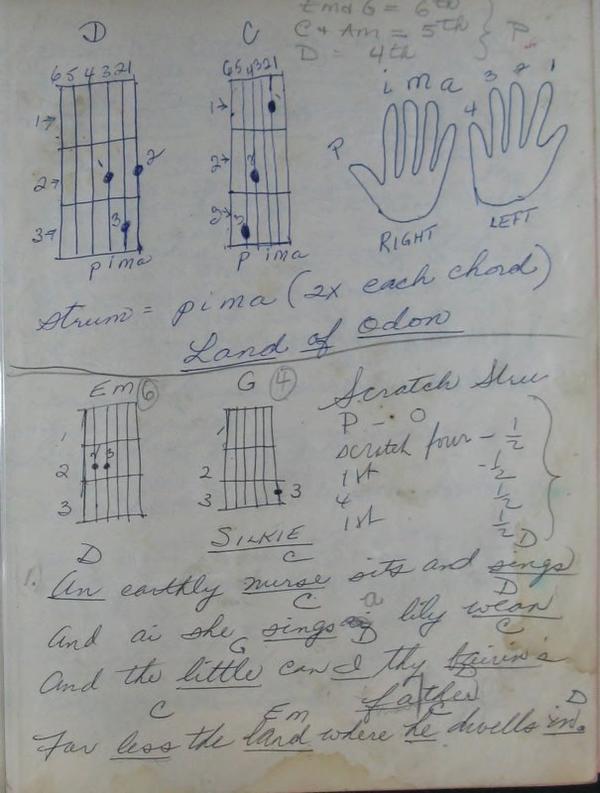 Em & G = 6th
C & Am = 5th
D = 4th
P
D
C
6 5 4 3 2 1
6 5 4 3 2 1
1→
2→
3→
1
2
3
1→
2→
3→
1
2
3
p i m a
p i m a
P i m a
RIGHT
4 3 2 1
LEFT
Strum = p i m a (2x each chord)
Land of Odon
Em 6
G 4
1
2
3
2 3
1
2
3
3
Scratch Stru
P - O
scratch four - 1/2
1st - 1/2
4 1/2
1st 1/2
SILKIE
D C D
1. An earthly nurse sits and sings
C D
And ai she sings a lily wean
G D C
And the little can I thy bairin's
father
C Em C D
Far less the land where he dwells in.